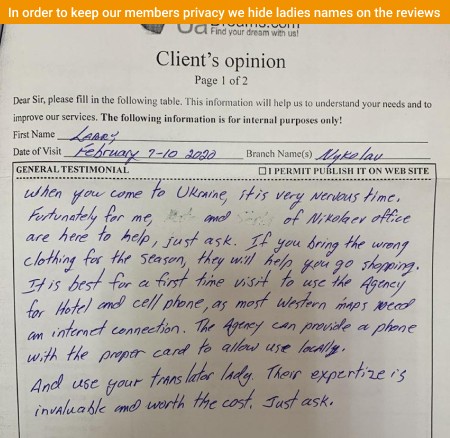 In order to keep our members privacy we hide ladies names on the reviews
Find your dream with us!
Client's opinion
Page 1 of 2
Dear Sir, please fill in the following table. This information will help us to understand your needs and to
improve our services. The following information is for internal purposes only!
First Name Larry
Date of Visit February 7-10 2020 Branch Name(s) Nykolau
GENERAL TESTIMONIAL ☐ I PERMIT PUBLISH IT ON WEB SITE
When you come to Ukraine, it is very nervous time.
Furtunately for me, and of Nikolaev office
are here to help, just ask. If you bring the wrong
clothing for the season, they will help you go shopping.
It is best for a first time visit to use the Agency
for Hotel and cell phone, as most western maps need
an internet connection. The Agency can provide a phone
with the proper card to allow use locally.
And use your translator lady. Their expertize is
invaluable and worth the cost. Just ask.